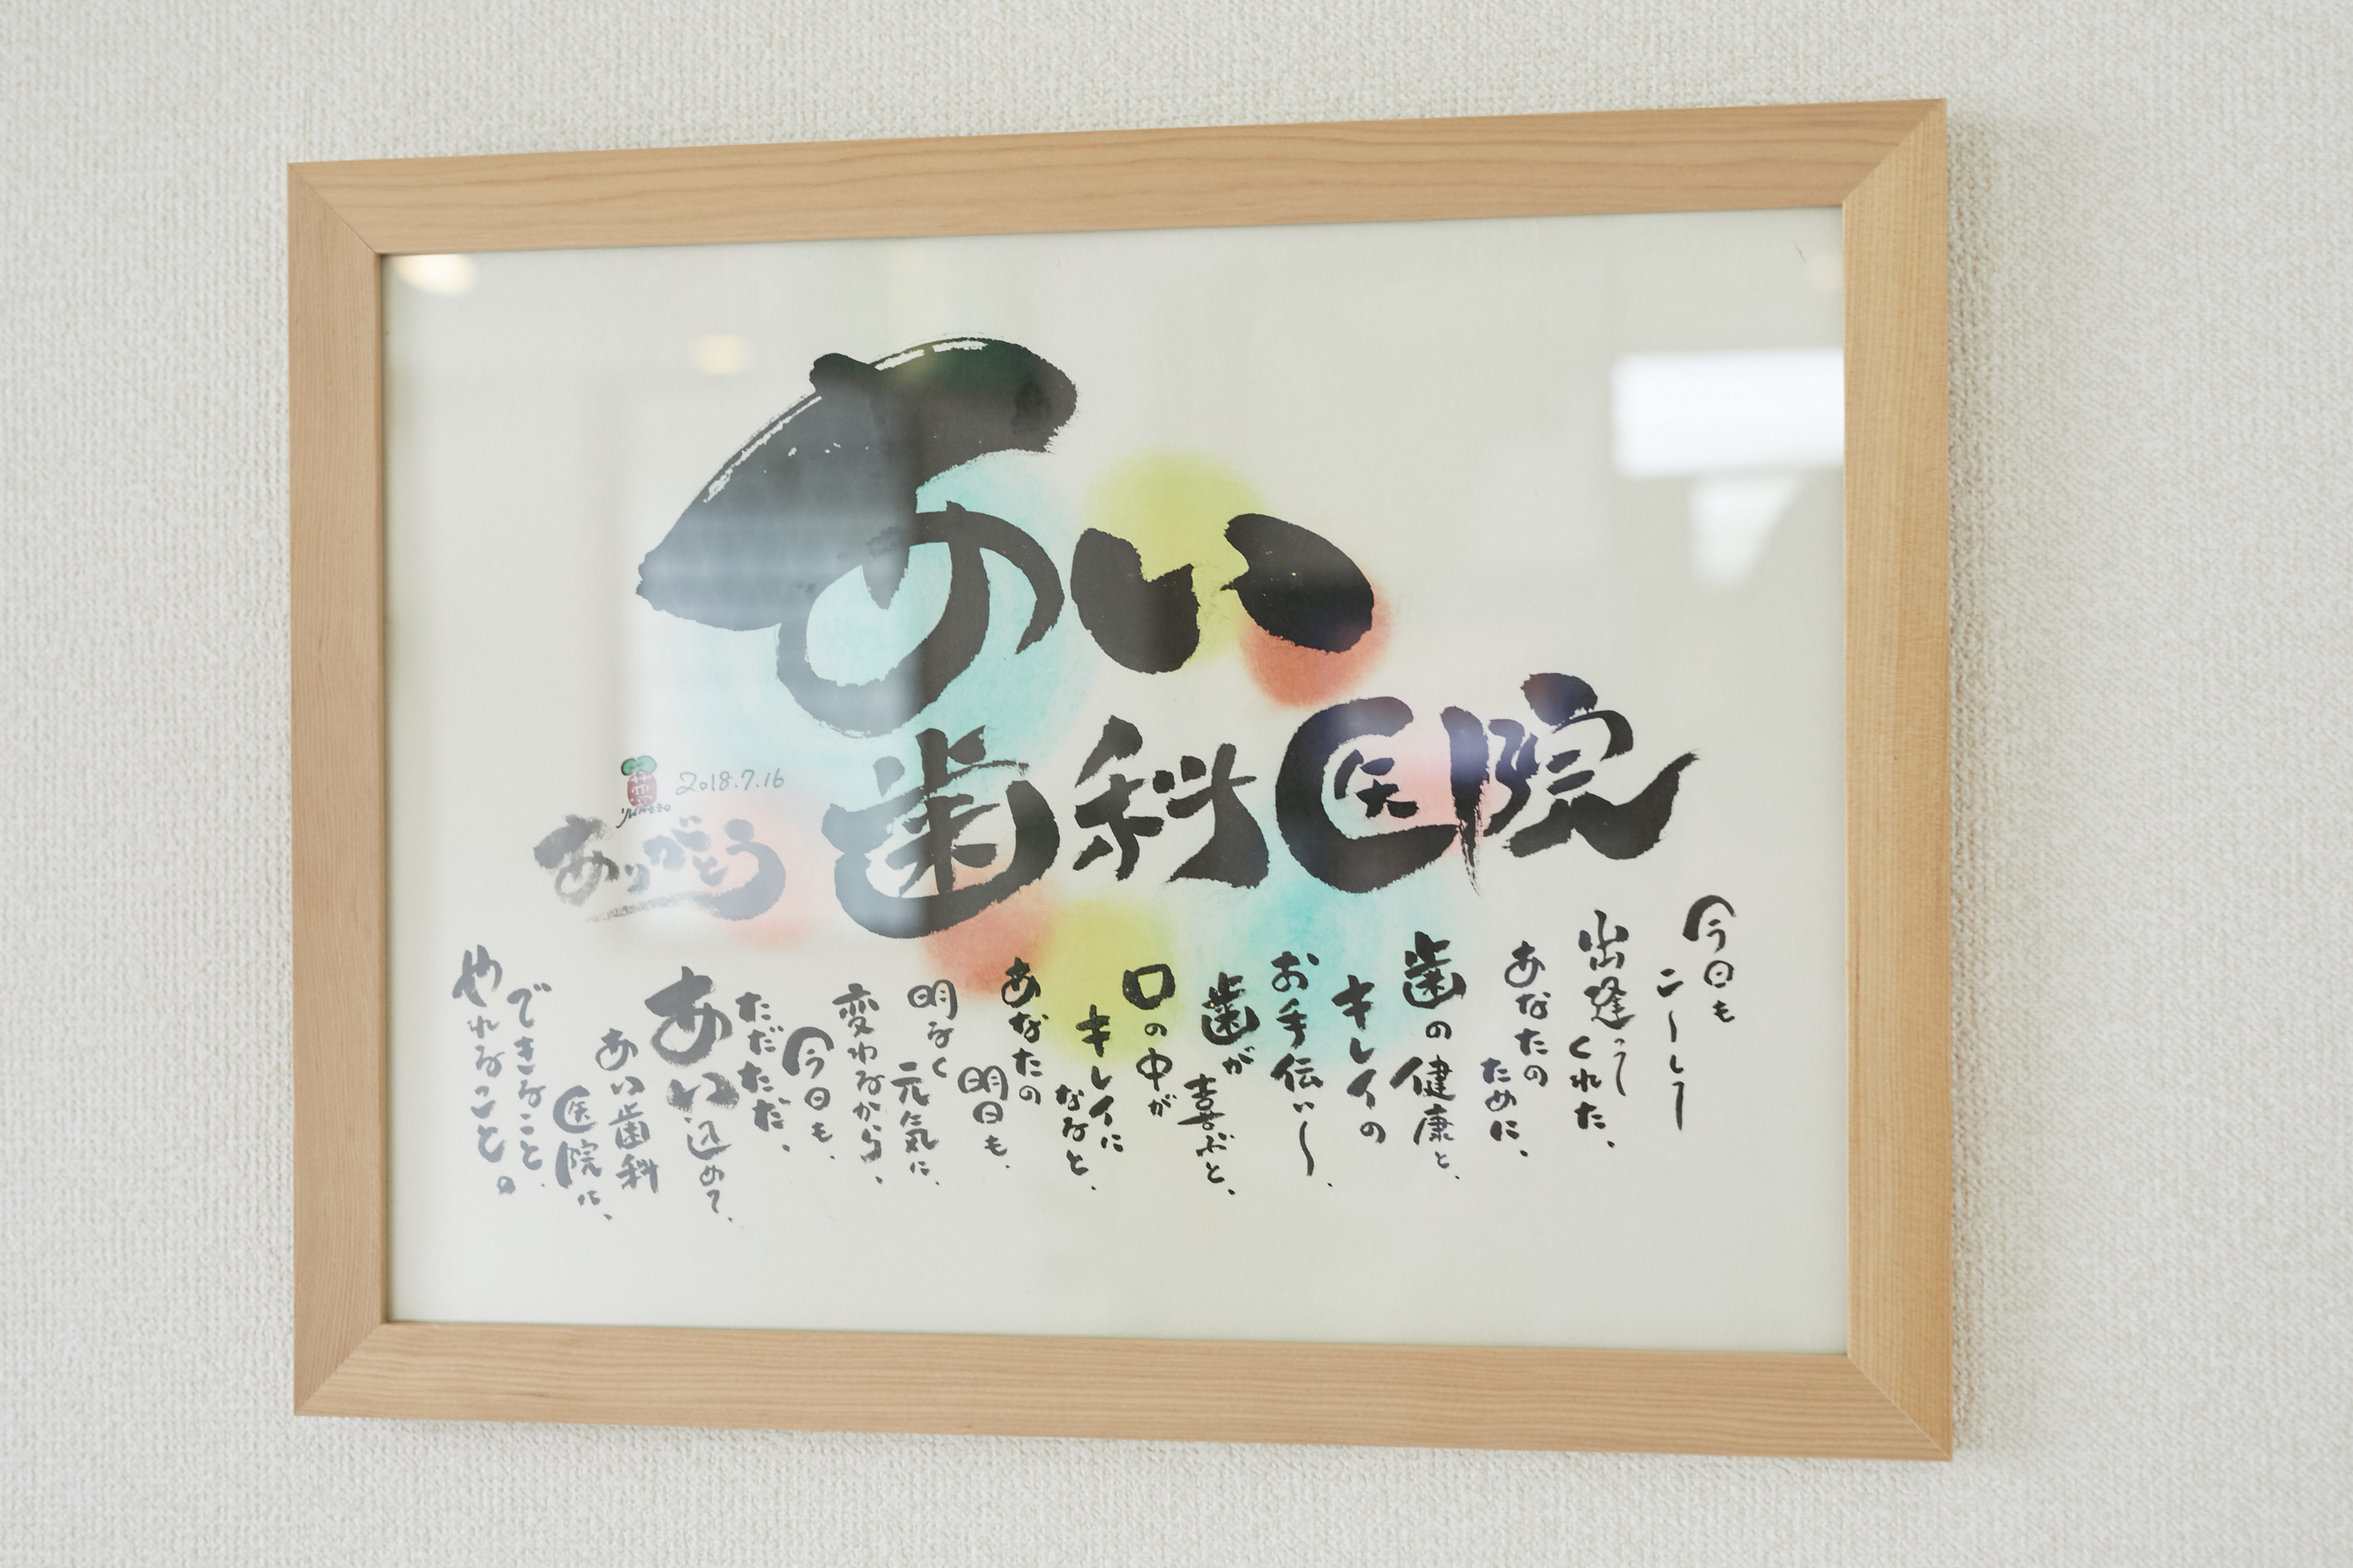 あい
歯科医院
2018.7.16
ありがとう
今日も
こーして
出逢って
くれた、
あなたの
ために、
歯の健康と、
キレイの
お手伝い〜、
歯が
喜ぶと、
口の中が
キレイに
なると、
あなたの
明日も、
明るく
元気に、
変わるから、
今日も、
ただただ、
あい込めて、
あい歯科
医院は、
できること、
やれること。